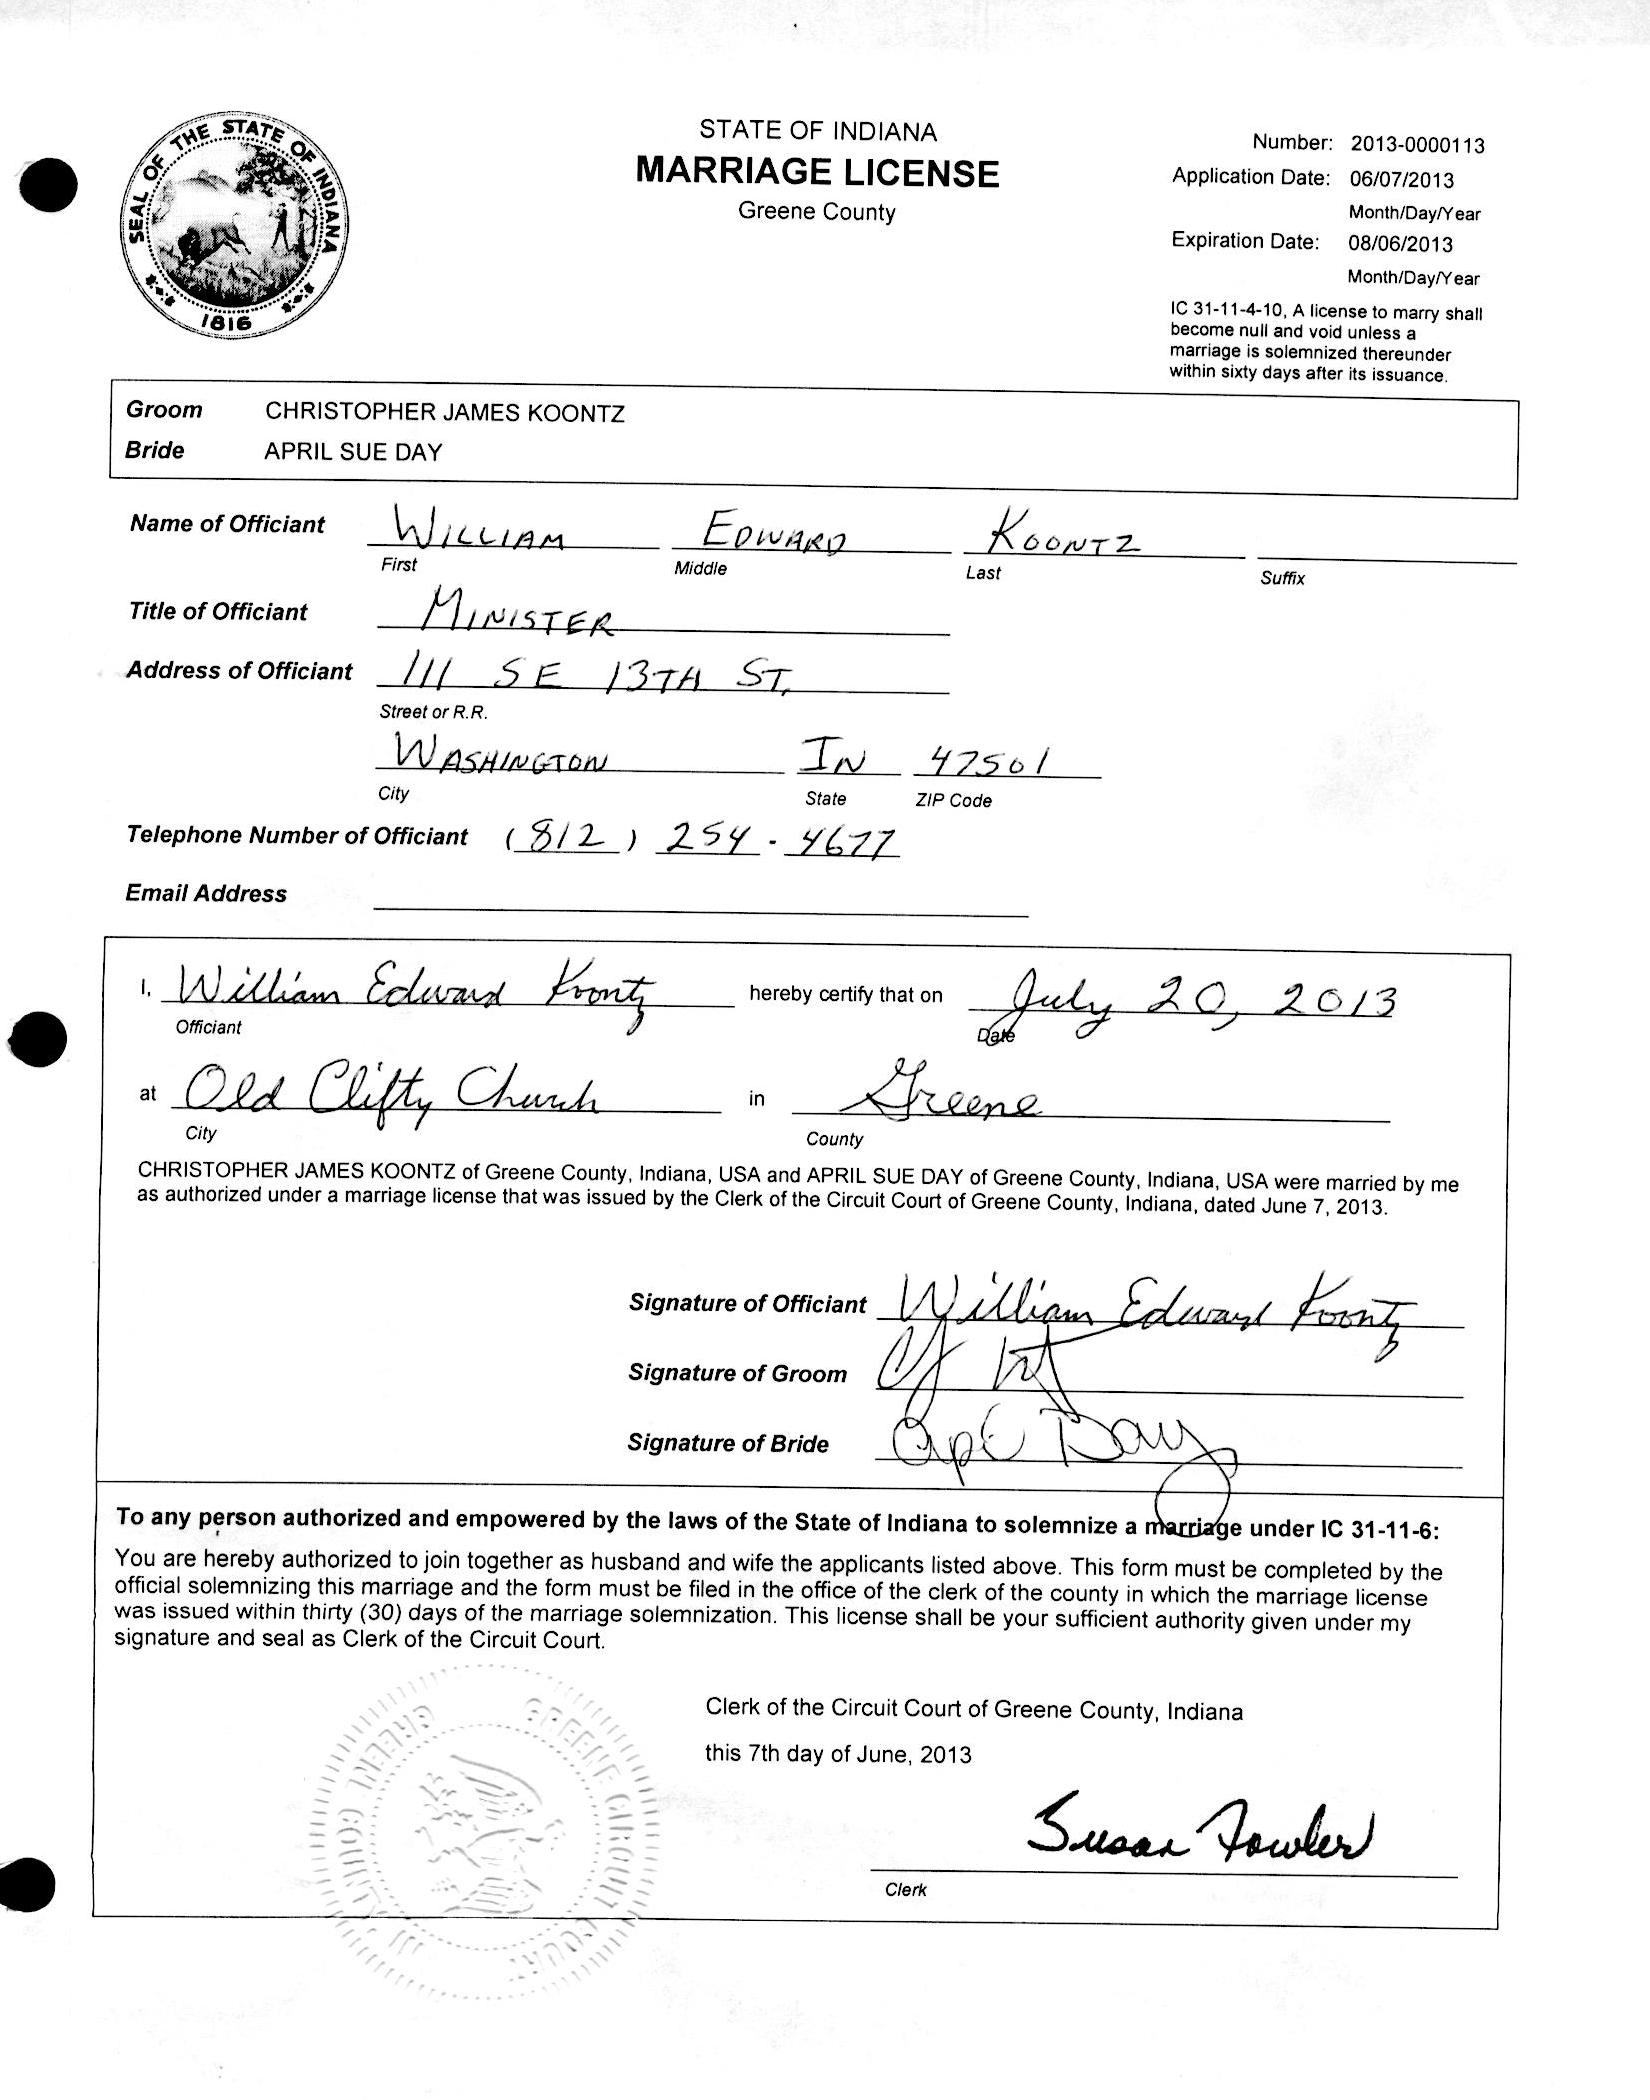 SEAL OF THE STATE OF INDIANA
1816
STATE OF INDIANA
MARRIAGE LICENSE
Greene County
Number: 2013-0000113
Application Date: 06/07/2013
Month/Day/Year
Expiration Date: 08/06/2013
Month/Day/Year
IC 31-11-4-10, A license to marry shall
become null and void unless a
marriage is solemnized thereunder
within sixty days after its issuance.
Groom CHRISTOPHER JAMES KOONTZ
Bride APRIL SUE DAY
Name of Officiant WILLIAM EDWARD KOONTZ
First Middle Last Suffix
Title of Officiant MINISTER
Address of Officiant 111 SE 13TH ST.
Street or R.R.
WASHINGTON IN 47501
City State ZIP Code
Telephone Number of Officiant (812) 254-4677
Email Address
I, William Edward Koontz hereby certify that on July 20, 2013
Officiant Date
at Old Clifty Church in Greene
City County
CHRISTOPHER JAMES KOONTZ of Greene County, Indiana, USA and APRIL SUE DAY of Greene County, Indiana, USA were married by me
as authorized under a marriage license that was issued by the Clerk of the Circuit Court of Greene County, Indiana, dated June 7, 2013.
Signature of Officiant William Edward Koontz
Signature of Groom
Signature of Bride Day
To any person authorized and empowered by the laws of the State of Indiana to solemnize a marriage under IC 31-11-6:
You are hereby authorized to join together as husband and wife the applicants listed above. This form must be completed by the
official solemnizing this marriage and the form must be filed in the office of the clerk of the county in which the marriage license
was issued within thirty (30) days of the marriage solemnization. This license shall be your sufficient authority given under my
signature and seal as Clerk of the Circuit Court.
GREENE CIRCUIT COURT
GREEN COUNTY
Clerk of the Circuit Court of Greene County, Indiana
this 7th day of June, 2013
Susan Fowler
Clerk